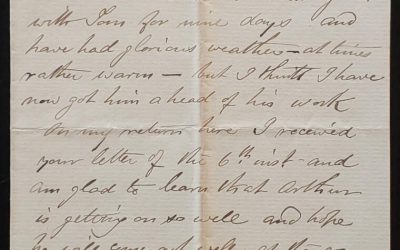 with Tom for nine days and
have had glorious weather – at times
rather warm – but I think I have
now got him ahead of his work
On my return here I received
your letter of the 6th inst – and
am glad to learn that Arthur
is getting on so well and hope
he will come out well at the